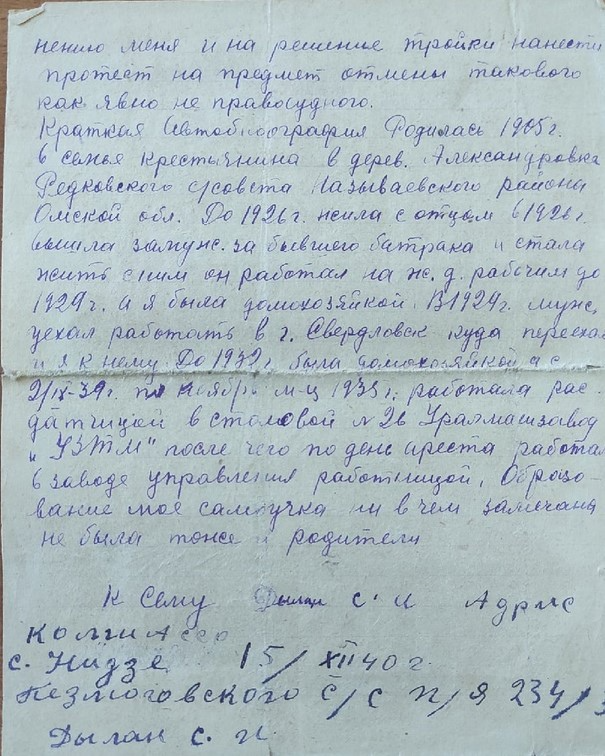 нению меня и на решение тройки нанести
протест на предмет отмены такового
как явно не правосудного.
Краткая Автобиография Родилась 1905 г.
в семье крестьянина в дерев. Александровка
Редковского с/совета Называевского района
Омской обл. До 1926 г. жила с отцом в 1926 г.
вышла замуж. за бывшего батрака и стала
жить с ним он работал на ж. д. рабочим до
1929 г. а я была домохозяйкой. В 1929 г. муж,
уехал работать в г. Свердловск куда переехал
и я к нему. До 1932 г. была домохозяйкой а с
по ноябрь м-ц 1935 г. работала раз-
датчицой в столовой № 26 Уралмашзавод
"УЗТМ" после чего по день ареста работал
в заводе управления работницой. Образо-
вание мое самоучка ни в чем замечана
не была тоже и родители
К Сему Дылан с. и Адрис
Коми Асср
с. Нидзь 15/XII 40 г.
Пезмоговского с/с п/я 234/3
Дылан с. и.